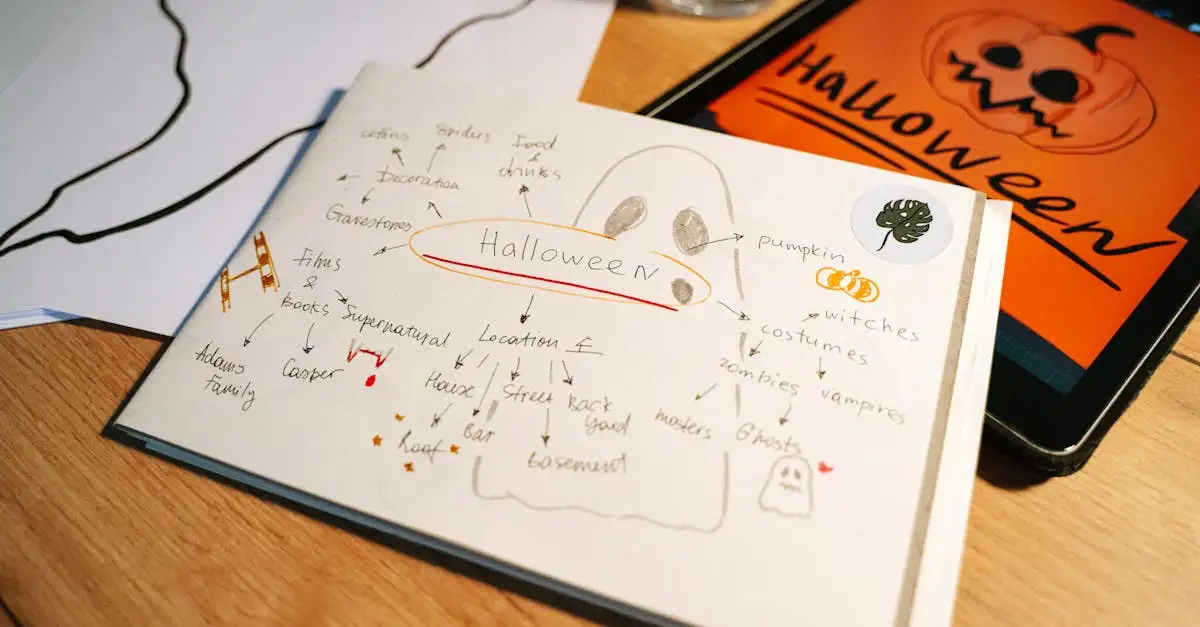 Halloween
coffins
Spiders
Food
&
drinks
Decoration
Gravestones
Halloween
pumpkin
Films
&
Books
Supernatural
Location
costumes
witches
Adams
Family
Casper
House
Street
Back
Yard
zombies
vampires
Roof
Bar
basement
mosters
Ghosts